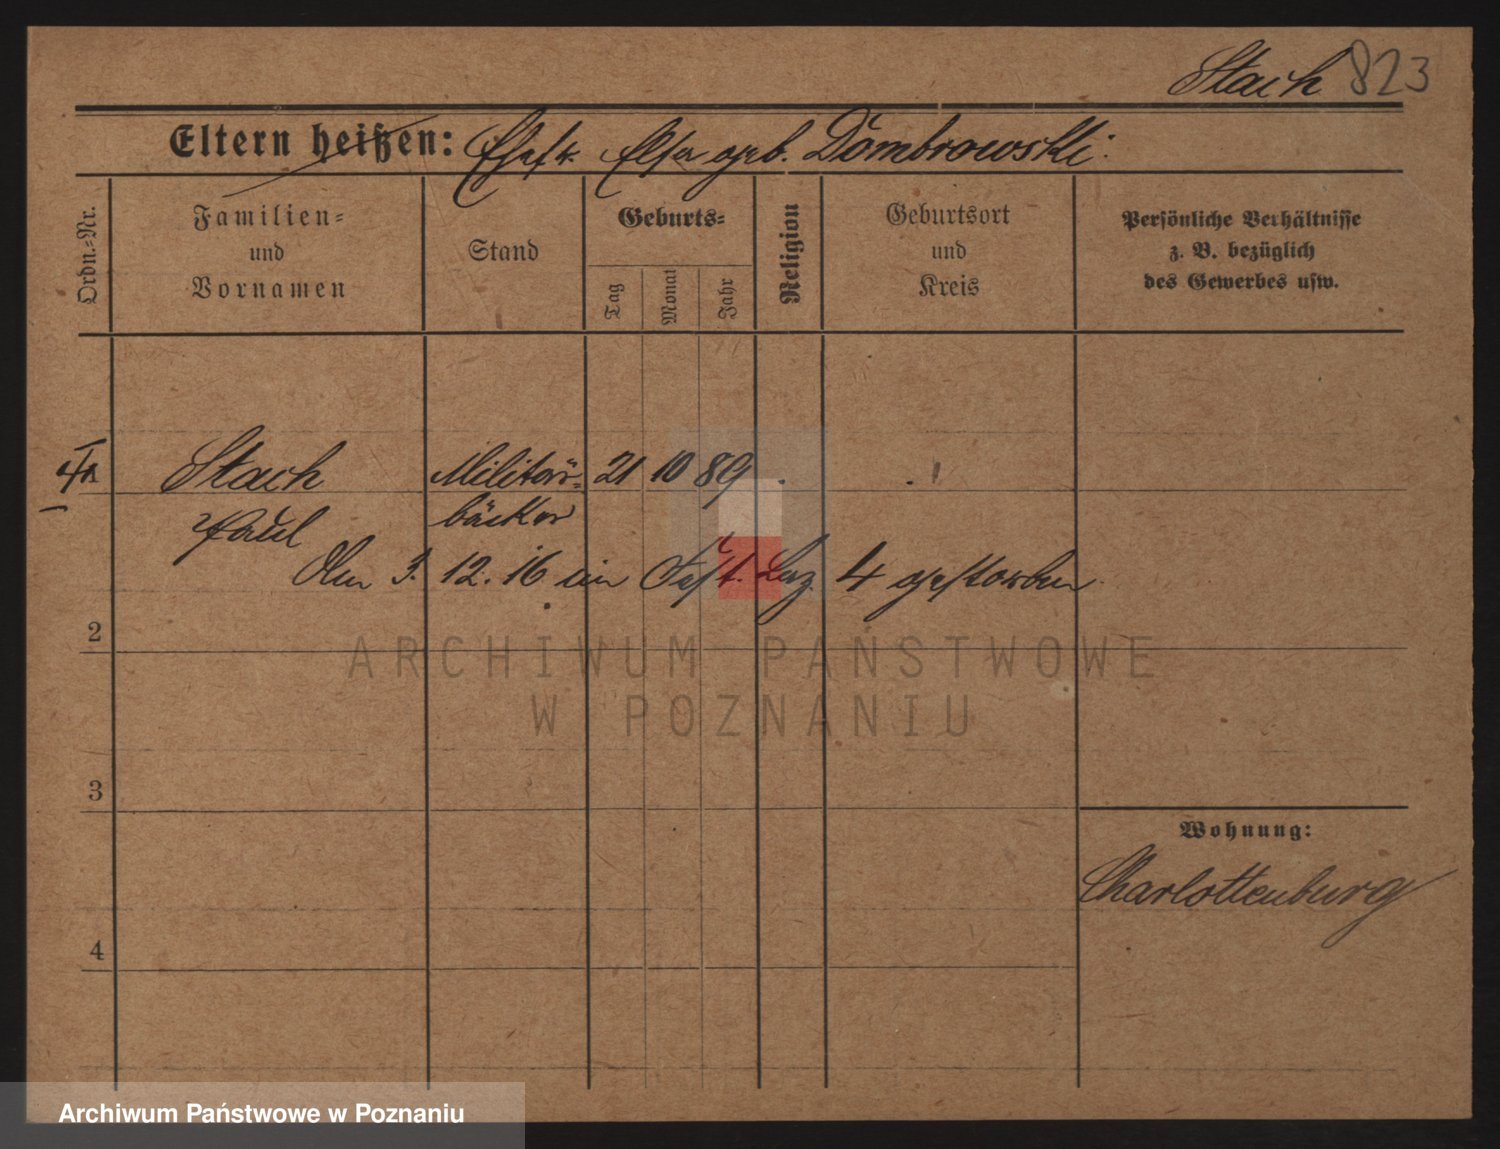 Stach 823
Eltern heißen: Ehefr. Elsa geb. Dombrowski.
Ordn.-Nr.
Familien-
und
Vornamen
Stand
Geburts-
Tag
Monat
Jahr
Religion
Geburtsort
und
Kreis
Persönliche Verhältnisse
z. B. bezüglich
des Gewerbes usw.
Stach Militär- 21 10 89
Paul bäcker
Am 3. 12. 16 im Fest. Laz. 4 gestorben.
2
3
4
Wohnung:
Charlottenburg
ARCHIWUM PAŃSTWOWE
W POZNANIU
Archiwum Państwowe w Poznaniu